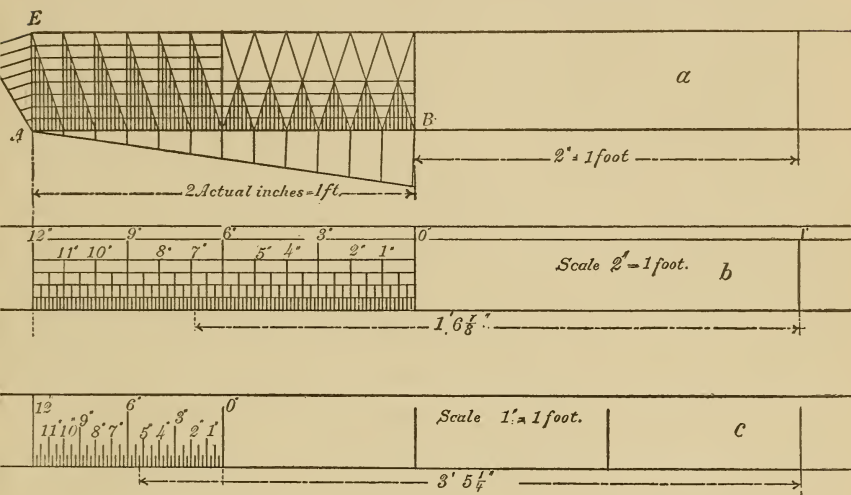 E
a
A
B
2" = 1 foot
2 Actual inches = 1ft.
12" 9" 6" 3" 0" 1'
11" 10" 8" 7" 5" 4" 2" 1"
Scale 2" = 1 foot.
b
1' 6 7/8"
12" 6" 0"
11" 10" 9" 8" 7" 5" 4" 3" 2" 1"
Scale 1" = 1 foot.
c
3' 5 1/4"